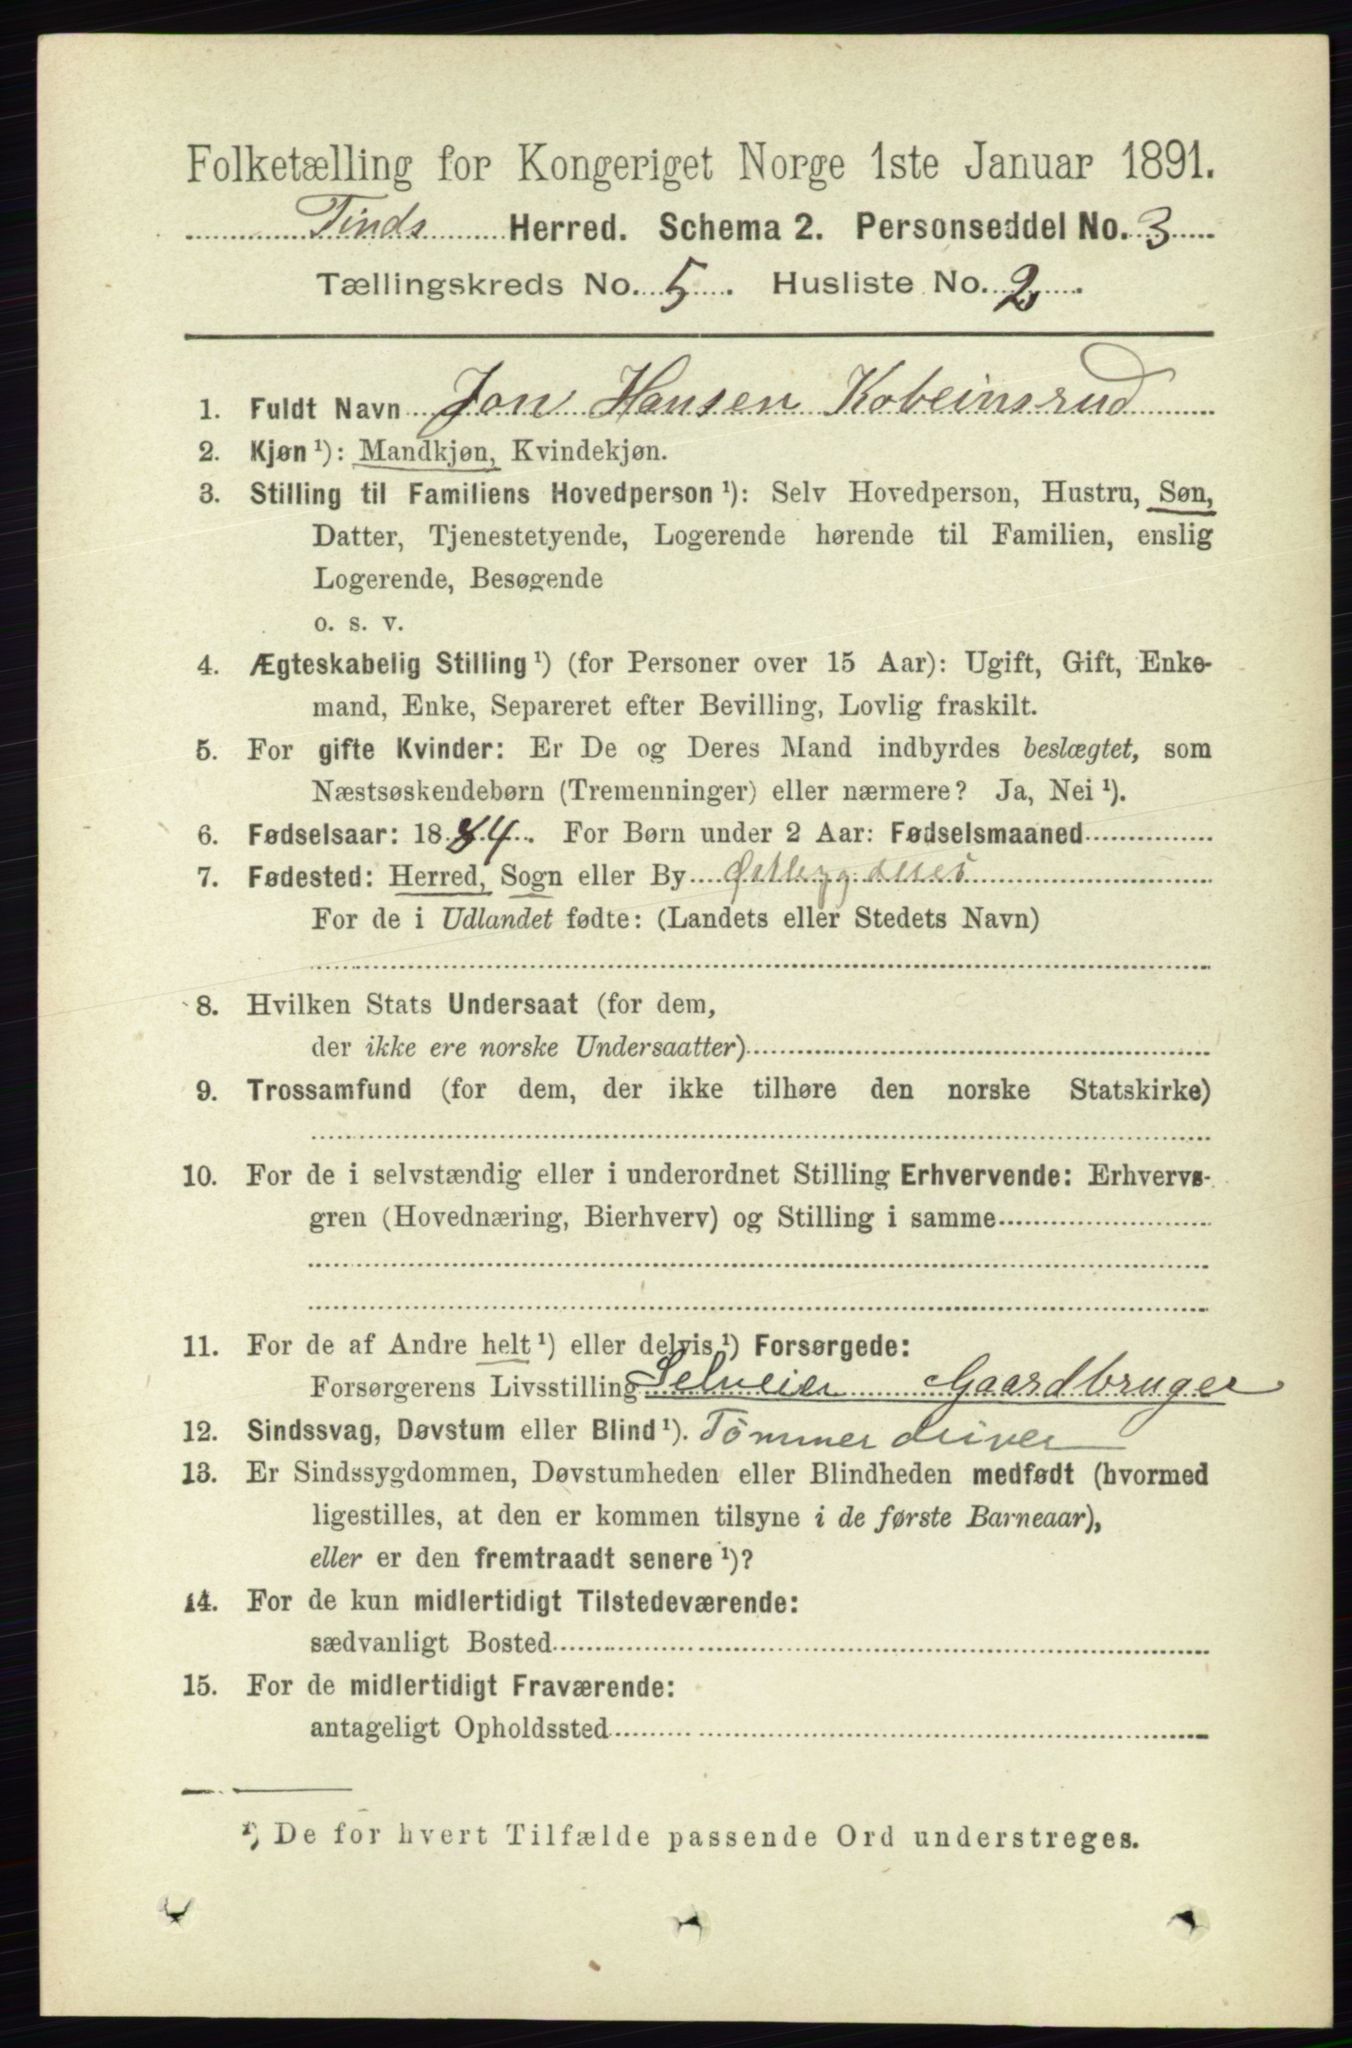 Folketælling for Kongeriget Norge 1ste Januar 1891.
Tinds Herred. Schema 2. Personseddel No. 3
Tællingskreds No. 5. Husliste No. 2.
1. Fuldt Navn Jon Hansen Kobeinsrud
2. Kjøn ¹): Mandkjøn, Kvindekjøn.
3. Stilling til Familiens Hovedperson ¹): Selv Hovedperson, Hustru, Søn,
Datter, Tjenestetyende, Logerende hørende til Familien, enslig
Logerende, Besøgende
o. s. v.
4. Ægteskabelig Stilling ¹) (for Personer over 15 Aar): Ugift, Gift, Enke-
mand, Enke, Separeret efter Bevilling, Lovlig fraskilt.
5. For gifte Kvinder: Er De og Deres Mand indbyrdes beslægtet, som
Næstsøskendebørn (Tremenninger) eller nærmere? Ja, Nei ¹).
6. Fødselsaar: 1884. For Børn under 2 Aar: Fødselsmaaned
7. Fødested: Herred, Sogn eller By
For de i Udlandet fødte: (Landets eller Stedets Navn)
8. Hvilken Stats Undersaat (for dem,
der ikke ere norske Undersaatter)
9. Trossamfund (for dem, der ikke tilhøre den norske Statskirke)
10. For de i selvstændig eller i underordnet Stilling Erhvervende: Erhvervs-
gren (Hovednæring, Bierhverv) og Stilling i samme
11. For de af Andre helt ¹) eller delvis ¹) Forsørgede:
Forsørgerens Livsstilling Selveier Gaardbruger
12. Sindssvag, Døvstum eller Blind ¹). Tömmerdriver
13. Er Sindssygdommen, Døvstumheden eller Blindheden medfødt (hvormed
ligestilles, at den er kommen tilsyne i de første Barneaar),
eller er den fremtraadt senere ¹)?
14. For de kun midlertidigt Tilstedeværende:
sædvanligt Bosted
15. For de midlertidigt Fraværende:
antageligt Opholdssted
¹) De for hvert Tilfælde passende Ord understreges.